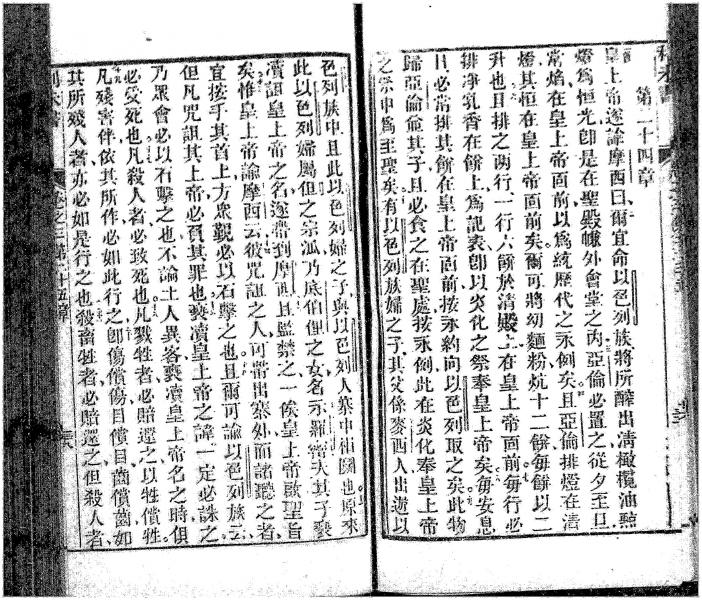 利未書
第二十四章
皇上帝遂諭摩西曰爾宜命以色列族將所醡出清橄欖油點
燈爲恒光卽是在聖殿幔外會堂之內亞倫必置之從夕至旦
常焰在皇上帝面前以爲統歷代之永例矣且亞倫排燈在清
燈其恒在皇上帝面前矣爾可將幼麵粉炕十二餅每餅以二
升也且排之兩行一行六餅於清殿上在皇上帝面前每行必
排净乳香在餅上爲記表卽以炎化之祭奉皇上帝矣每安息
日必常排其餅在皇上帝面前按永約向以色列取之矣此物
歸亞倫並其子且必食之在聖處按永例此在炎化奉皇上帝
之祭中爲至聖矣有以色列族婦之子其父係麥西人出遊以
色列族中且此以色列婦之子與以色列人寨中相鬪也原來
此以色列婦屬但之宗派乃底伯俚之女名示羅密夫其子褻
瀆詛皇上帝之名遂帶到摩西且監禁之一俟皇上帝啟聖旨
矣惟皇上帝諭摩西云彼咒詛之人可帶出寨外而諸聽之者
宜按手其首上方衆覲必以石擊之也且爾可諭以色列族云
但凡咒詛其上帝必負其罪也褻瀆皇上帝之諱一定必誅之
乃眾會必以石擊之也不論土人異客褻瀆皇上帝名之時俱
必受死也凡殺人者必致死也凡戮牲者必賠還之以牲償牲
凡殘害伴依其所作必如此行之卽傷償傷目償目齒償齒如
其所殘人者亦必如是行之也殺畜牲者必賠還之但殺人者
利未書 卷之三第二十五章